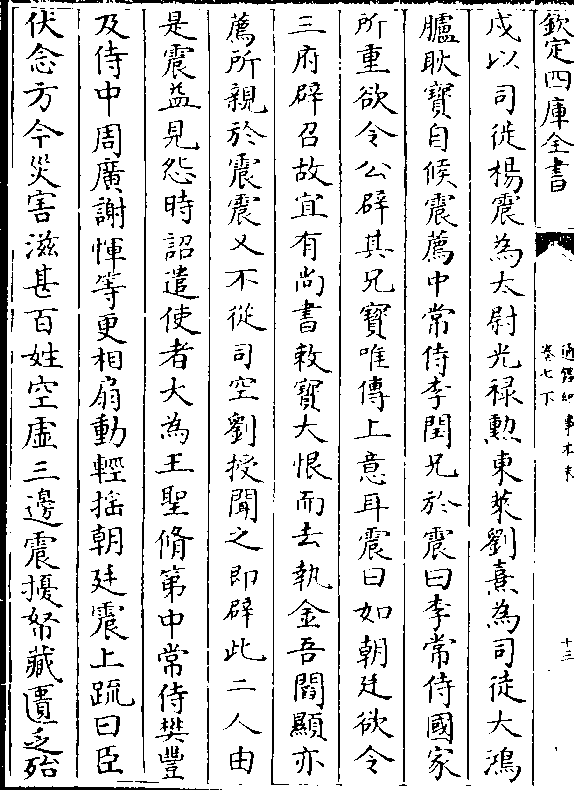 欽定四庫全書
通鑑紀事本末
卷七下
十三
戌以司徒楊震為太尉光禄勲東萊劉熹為司徒大鴻
臚耿寳自候震薦中常侍李閏兄於震曰李常侍國家
所重欲令公辟其兄寳唯傳上意耳震曰如朝廷欲令
三府辟召故宜有尚書敕寳大恨而去執金吾閻顯亦
薦所親於震震又不從司空劉授聞之即辟此二人由
是震益見怨時詔遣使者大為王聖脩第中常侍樊豐
及侍中周廣謝惲等更相扇動輕揺朝廷震上疏曰臣
伏念方今災害滋甚百姓空虚三邊震擾帑藏匱乏殆